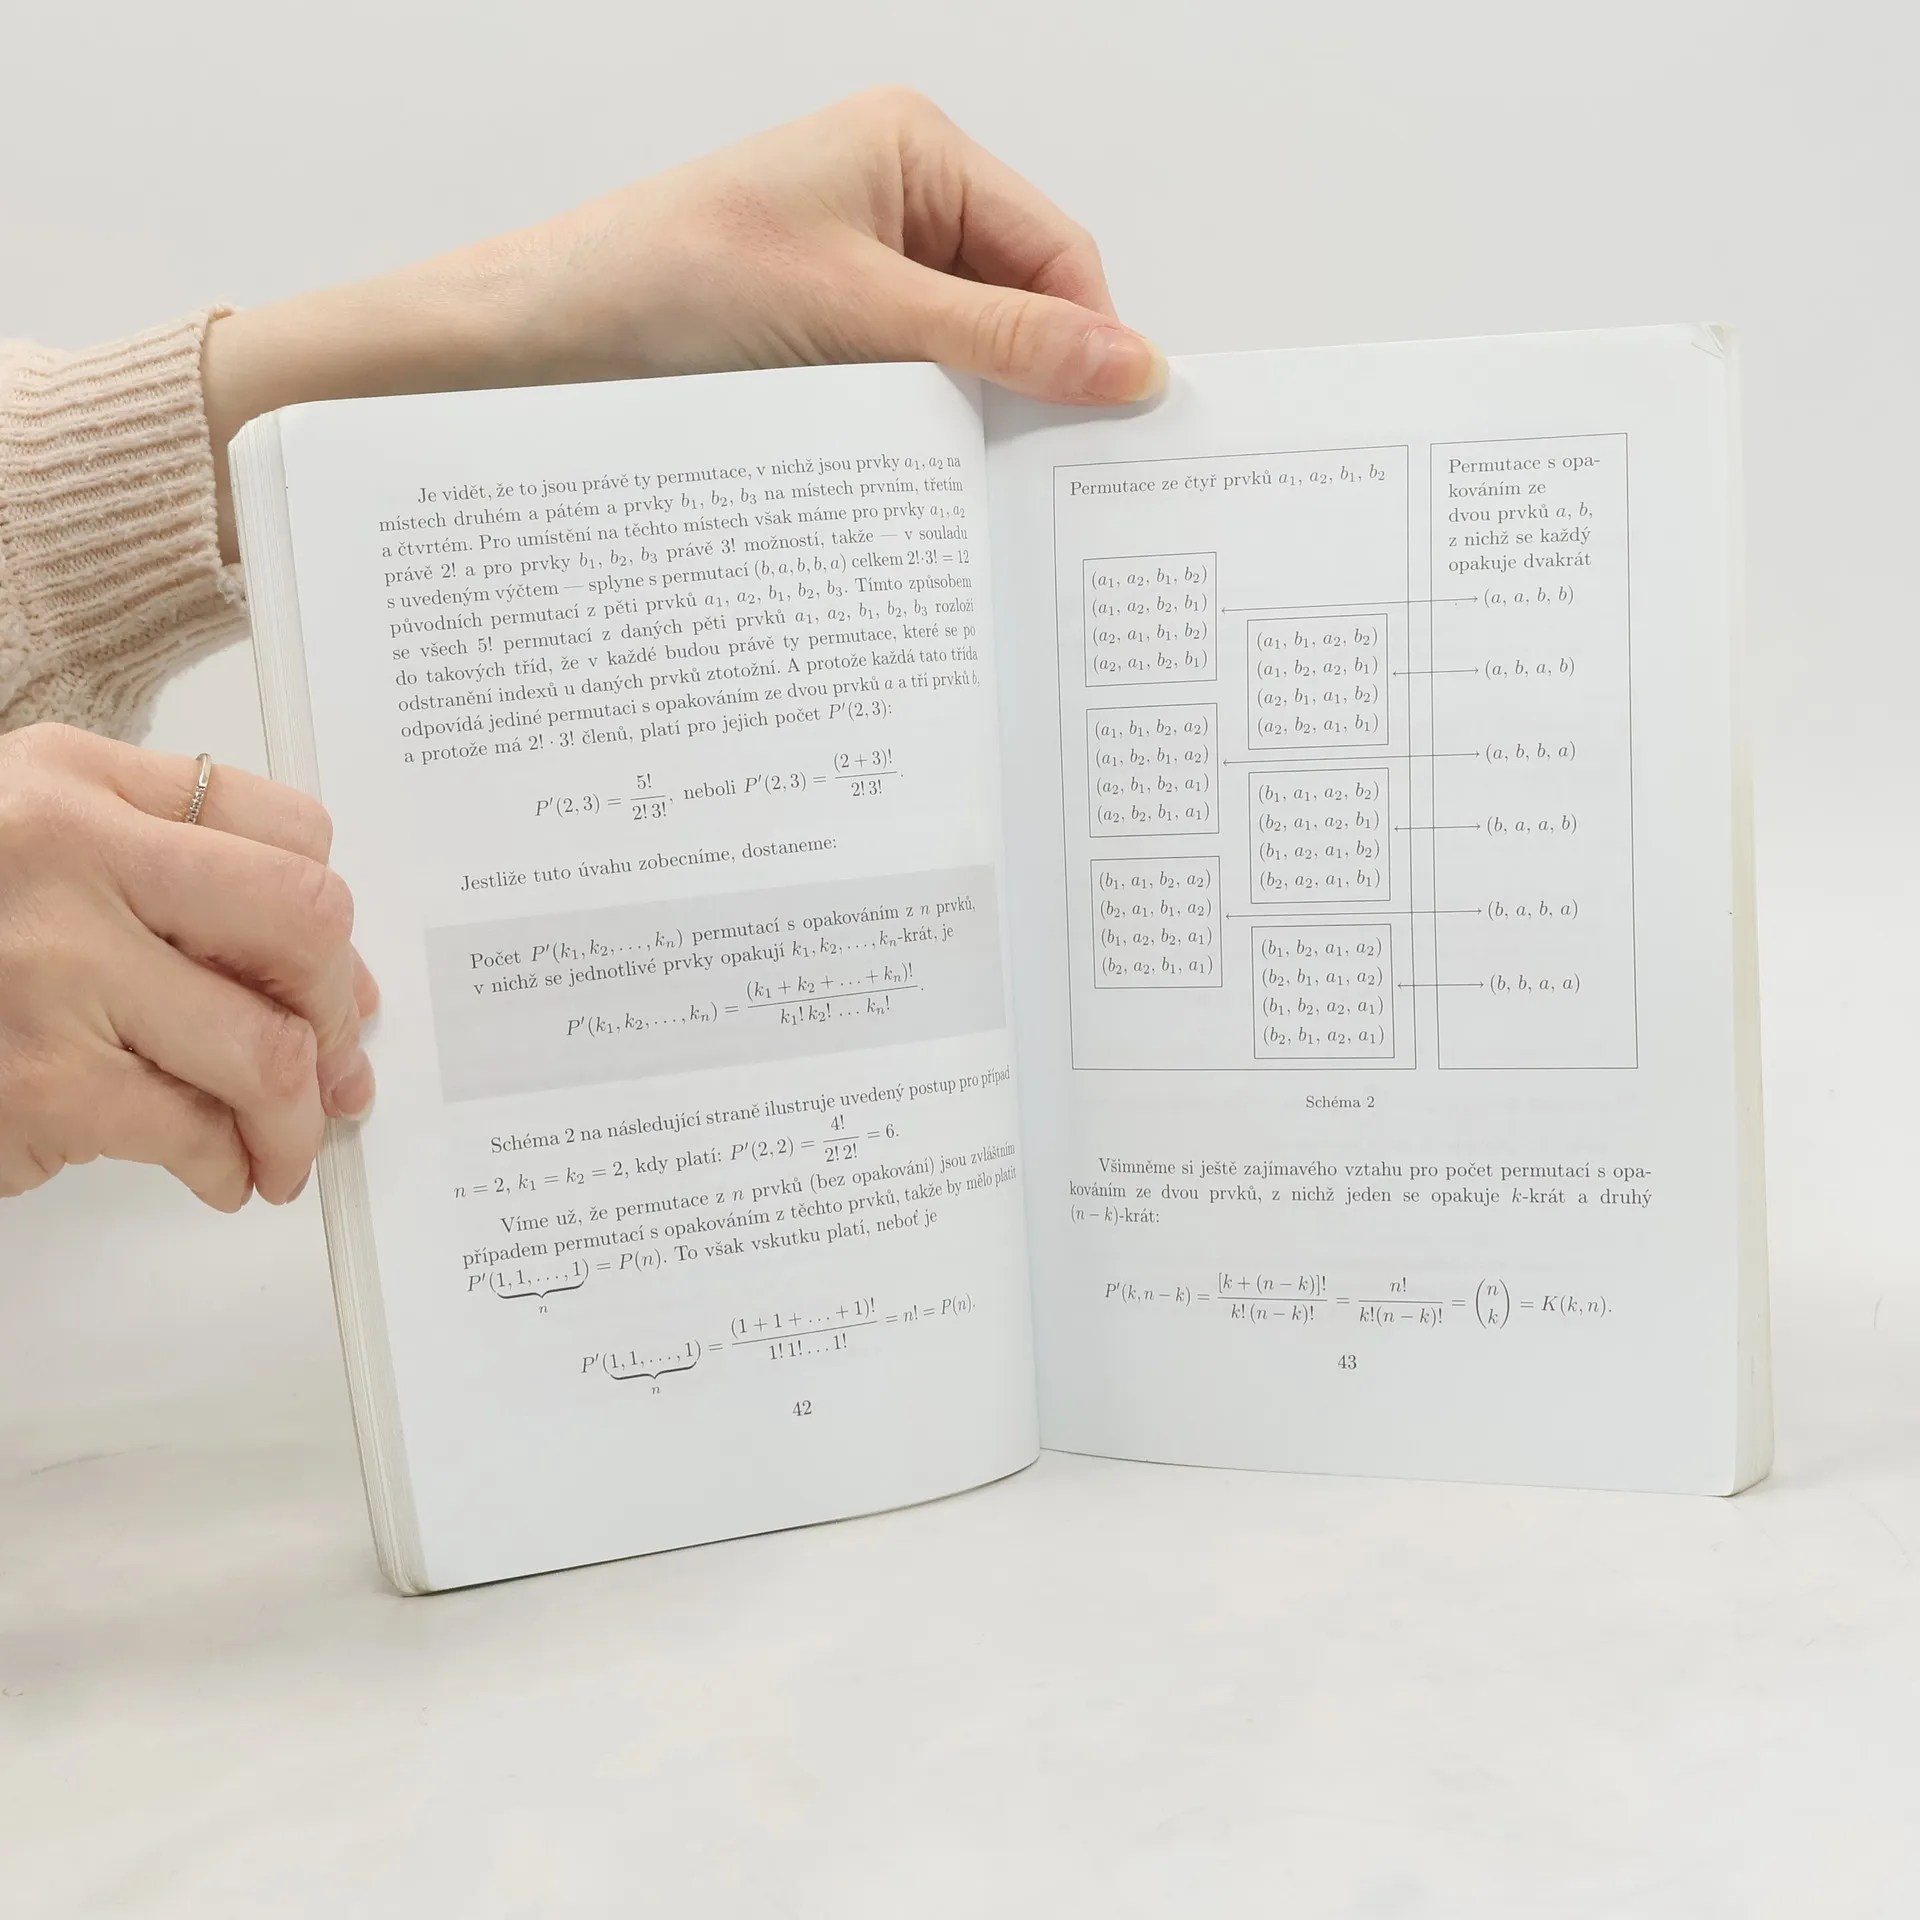 Je vidět, že to jsou právě ty permutace, v nichž jsou prvky a₁, a₂ na
místech druhém a pátém a prvky b₁, b₂, b₃ na místech prvním, třetím
a čtvrtém. Pro umístění na těchto místech však máme pro prvky a₁, a₂
právě 2! a pro prvky b₁, b₂, b₃ právě 3! možností, takže — v souladu
s uvedeným výčtem — splyne s permutací (b, a, b, b, a) celkem 2!·3! = 12
původních permutací z pěti prvků a₁, a₂, b₁, b₂, b₃. Tímto způsobem
se všech 5! permutací z daných pěti prvků a₁, a₂, b₁, b₂, b₃ rozloží
do takových tříd, že v každé budou právě ty permutace, které se po
odstranění indexů u daných prvků ztotožní. A protože každá tato třída
odpovídá jediné permutaci s opakováním ze dvou prvků a a tří prvků b,
a protože má 2! · 3! členů, platí pro jejich počet P′(2, 3):
P′(2, 3) = 5!/(2! 3!), neboli P′(2, 3) = (2 + 3)!/(2! 3!).
Jestliže tuto úvahu zobecníme, dostaneme:
Počet P′(k₁, k₂, . . . , kₙ) permutací s opakováním z n prvků,
v nichž se jednotlivé prvky opakují k₁, k₂, . . . , kₙ-krát, je
P′(k₁, k₂, . . . , kₙ) = (k₁ + k₂ + . . . + kₙ)!/(k₁! k₂! . . . kₙ!).
Schéma 2 na následující straně ilustruje uvedený postup pro případ
n = 2, k₁ = k₂ = 2, kdy platí: P′(2, 2) = 4!/(2! 2!) = 6.
Víme už, že permutace z n prvků (bez opakování) jsou zvláštním
případem permutací s opakováním z těchto prvků, takže by mělo platit
P′(1, 1, . . . , 1) = P(n). To však vskutku platí, neboť je
n
P′(1, 1, . . . , 1) = (1 + 1 + . . . + 1)!/(1! 1! . . . 1!) = n! = P(n).
n
42
Permutace ze čtyř prvků a₁, a₂, b₁, b₂
(a₁, a₂, b₁, b₂)
(a₁, a₂, b₂, b₁)
(a₂, a₁, b₁, b₂)
(a₂, a₁, b₂, b₁)
(a₁, b₁, a₂, b₂)
(a₁, b₂, a₂, b₁)
(a₂, b₁, a₁, b₂)
(a₂, b₂, a₁, b₁)
(a₁, b₁, b₂, a₂)
(a₁, b₂, b₁, a₂)
(a₂, b₁, b₂, a₁)
(a₂, b₂, b₁, a₁)
(b₁, a₁, a₂, b₂)
(b₂, a₁, a₂, b₁)
(b₁, a₂, a₁, b₂)
(b₂, a₂, a₁, b₁)
(b₁, a₁, b₂, a₂)
(b₂, a₁, b₁, a₂)
(b₁, a₂, b₂, a₁)
(b₂, a₂, b₁, a₁)
(b₁, b₂, a₁, a₂)
(b₂, b₁, a₁, a₂)
(b₁, b₂, a₂, a₁)
(b₂, b₁, a₂, a₁)
Permutace s opa-
kováním ze
dvou prvků a, b,
z nichž se každý
opakuje dvakrát
(a, a, b, b)
(a, b, a, b)
(a, b, b, a)
(b, a, a, b)
(b, a, b, a)
(b, b, a, a)
Schéma 2
Všimněme si ještě zajímavého vztahu pro počet permutací s opa-
kováním ze dvou prvků, z nichž jeden se opakuje k-krát a druhý
(n − k)-krát:
P′(k, n − k) = [k + (n − k)]!/(k! (n − k)!) = n!/(k!(n − k)!) = (n k) = K(k, n).
43